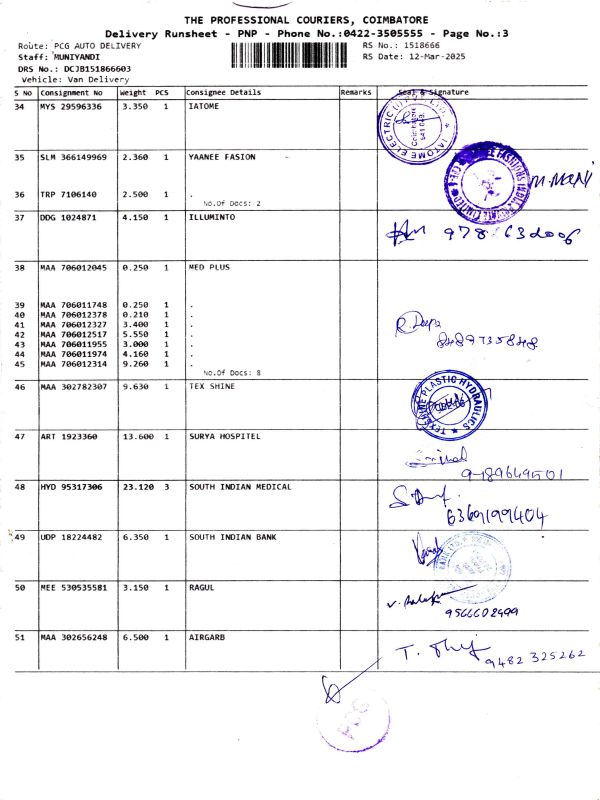 THE PROFESSIONAL COURIERS, COIMBATORE
Delivery Runsheet - PNP - Phone No.:0422-3505555 - Page No.:3
Route: PCG AUTO DELIVERY RS No.: 1518666
Staff: MUNIYANDI RS Date: 12-Mar-2025
DRS No.: DCJB151866603
Vehicle: Van Delivery
S No Consignment No Weight PCS Consignee Details Remarks Seal & Signature
34 MYS 29596336 3.350 1 IATOME
IATOME ELECTRIC
35 SLM 366149969 2.360 1 YAANEE FASION
36 TRP 7106140 2.500 1 .
No.Of Docs: 2
37 DDG 1024871 4.150 1 ILLUMINTO
38 MAA 706012045 0.250 1 MED PLUS
39 MAA 706011748 0.250 1 .
40 MAA 706012378 0.210 1 .
41 MAA 706012327 3.400 1 .
42 MAA 706012517 5.550 1 .
43 MAA 706011955 3.000 1 .
44 MAA 706011974 4.160 1 .
45 MAA 706012314 9.260 1 .
No.Of Docs: 8
R. Deepa
8489735848
46 MAA 302782307 9.630 1 TEX SHINE
PLASTIC HYDRAULICS
47 ART 1923360 13.600 1 SURYA HOSPITEL
9489649501
48 HYD 95317306 23.120 3 SOUTH INDIAN MEDICAL
6369199404
49 UDP 18224482 6.350 1 SOUTH INDIAN BANK
50 MEE 530535581 3.150 1 RAGUL
9566602499
51 MAA 302656248 6.500 1 AIRGARB
9482325262
PCG